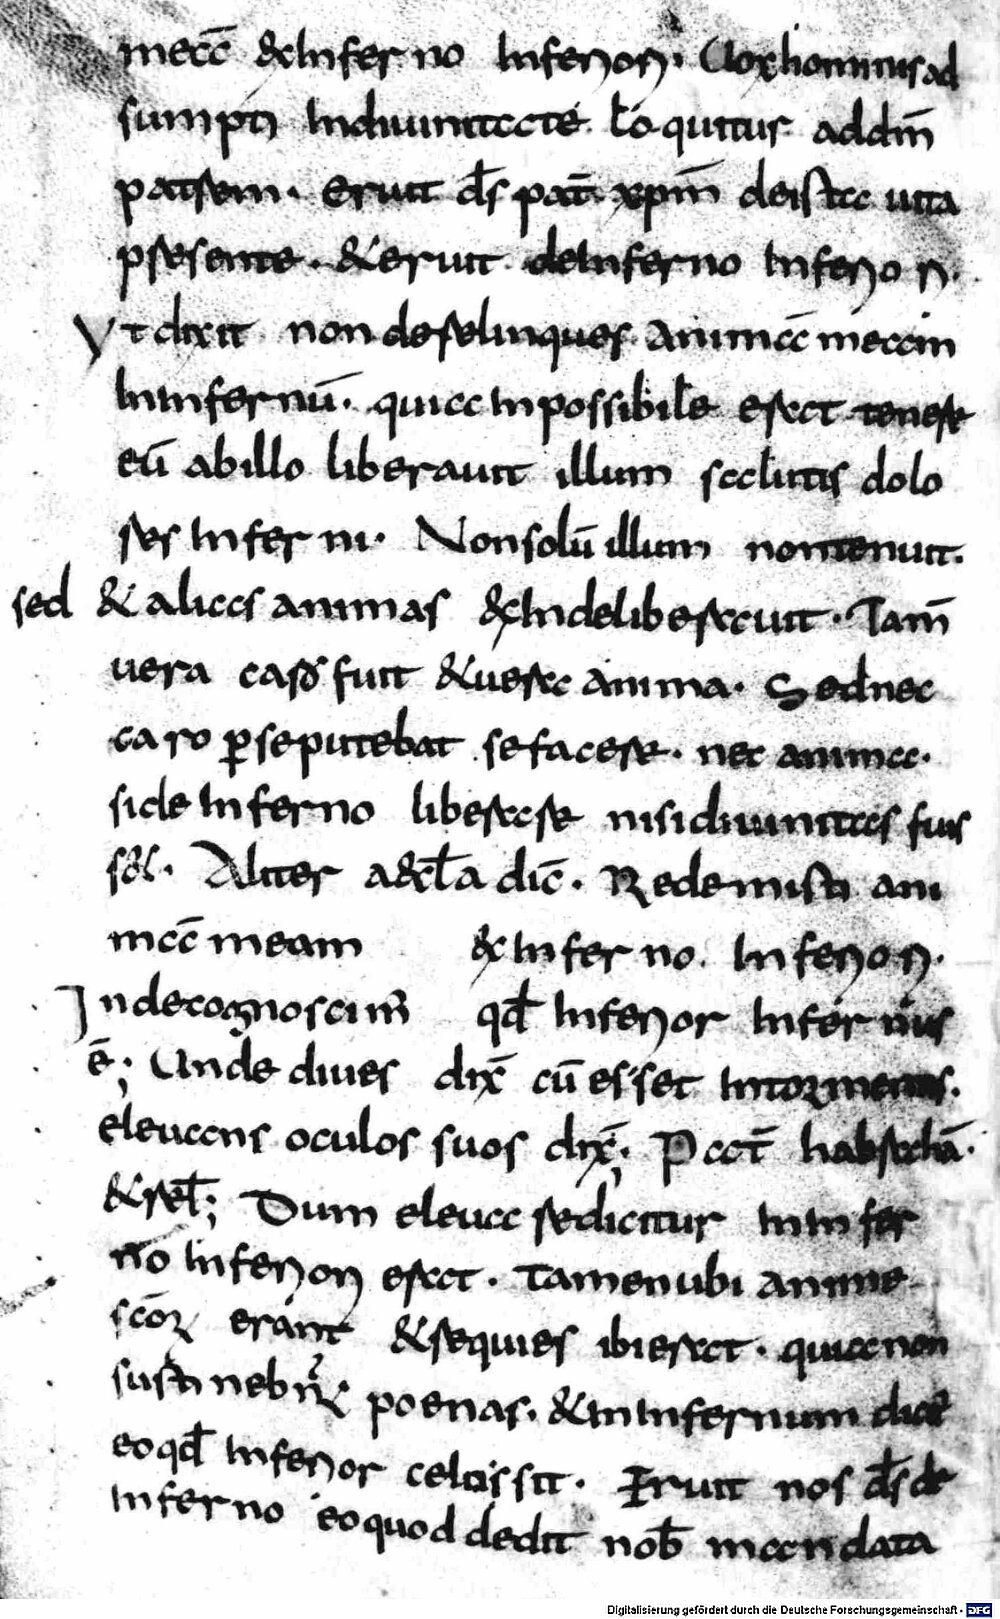 meā ex inferno inferiori. Vox hominis ad
sumpti in divinitate loquitur ad dm̄
patrem. Eruit ds̄ pat̄ xpm̄ de ista vita
presente. & eruit de inferno inferiori.
Vt dixit non derelinques animā meam
in infernū. quia inpossibile erat tenere
eū ab illo liberavit illum solutis dolo
res inferni. Non solū illum non tenuit.
sed & alias animas ex inde liberavit. Tam̄
vera caro fuit & vera anima. Sed nec
caro p̱ se putebat se facere. nec anima.
si de inferno liberare nisi divinitas fuis
s&. Aliter a&cl̄a dic̄. Redemisti ani
mā meam ex inferno inferiori.
Inde cognoscim̄ qd̄ inferior infernus
ē; Unde dives dix̄ cū esset in tormentis.
elevans oculos suos dix̄; Pat̄ habrahā.
& rel̄; Dum eleva re dicitur in infer
no inferiori erat. Tamen ubi anime
scōꝝ erant & requies ibi erat. quia non
sustineban̄t poenas. & in infernum
eo qd̄ inferior celis sit. Eruit nos ds̄ de
inferno eo quod dedit nob̄ mandata
Digitalisierung gefördert durch die Deutsche Forschungsgemeinschaft - DFG